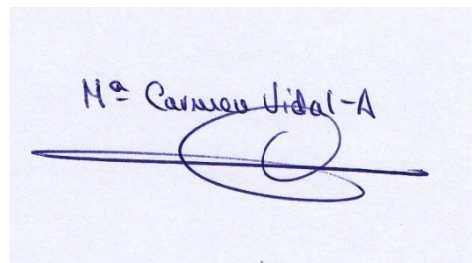 Mª Carmen Vidal-A